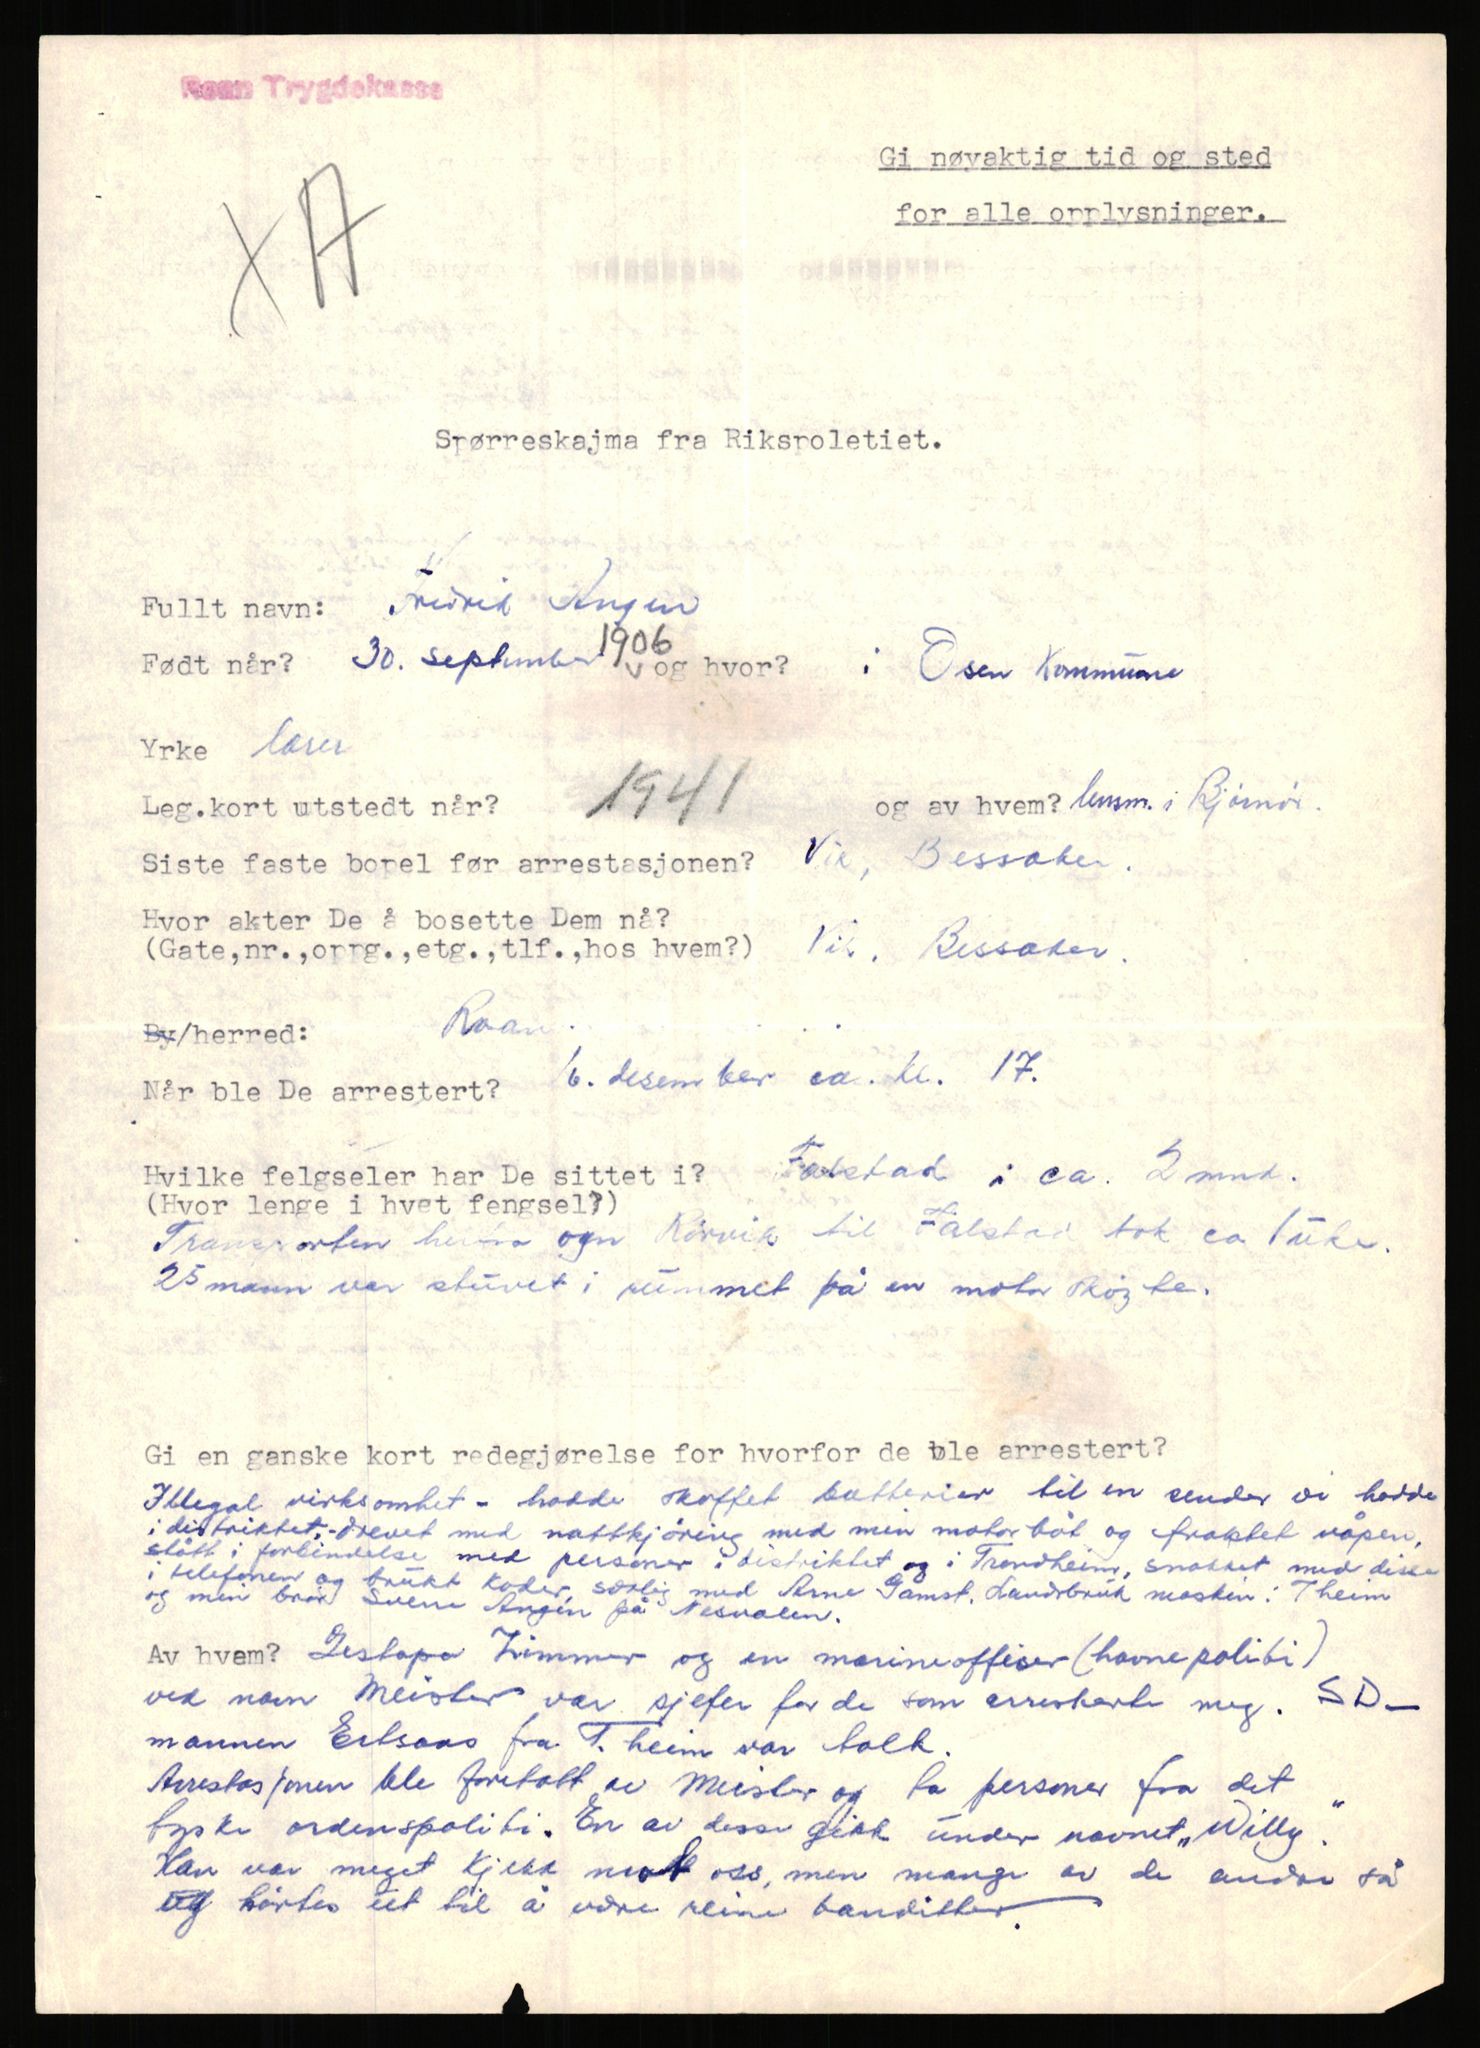 Roan Trygdekasse
Gi nøyaktig tid og sted
for alle opplysninger.
XA
Spørreskajma fra Rikspoletiet.
Fullt navn: Fredrik Angen
Født når? 30. september 1906 og hvor? i Osen Kommune
Yrke lærer
Leg.kort utstedt når? 1941 og av hvem? lensm. i Bjørnør.
Siste faste bopel før arrestasjonen? Vik, Bessaker.
Hvor akter De å bosette Dem nå?
(Gate,nr.,oppg.,etg.,tlf.,hos hvem?) Vik. Bessaker.
By/herred: Roan.
Når ble De arrestert? 6. desember ca. kl. 17.
Hvilke felgseler har De sittet i? Falstad i ca. 2 mnd.
(Hvor lenge i hvet fengsel?)
Transporten heima ogn Rørvik til Falstad tok ca 1 uke.
25 mann var stuvet i rummet på en motorskøyte.
Gi en ganske kort redegjørelse for hvorfor de ble arrestert?
Illegal virksomhet - hadde skaffet batterier til en sender vi hadde
i distriktet, - drevet med nattkjøring med min motorbåt og fraktet våpen,
stått i forbindelse med personer i distriktet og i Trondheim, snakket med disse
i telefonen og brukt koder, særlig med Arne Gamst, Landbruk masken i T heim
og min bror Sverre Angen på Nesvalen.
Av hvem? Gestapo Zimmer og en marineoffiser (havnepoliti)
ved navn Meister var sjefer for de som arresterte meg. SD-
mannen Ertsaas fra T. heim var tolk.
Arrestasjonen ble foretatt av Meister og to personer fra det
tyske ordenspoliti. En av disse gikk under navnet "Willy".
Han var meget kjekk mot oss, men mange av de andre så
og hørtes ut til å være reine banditter.